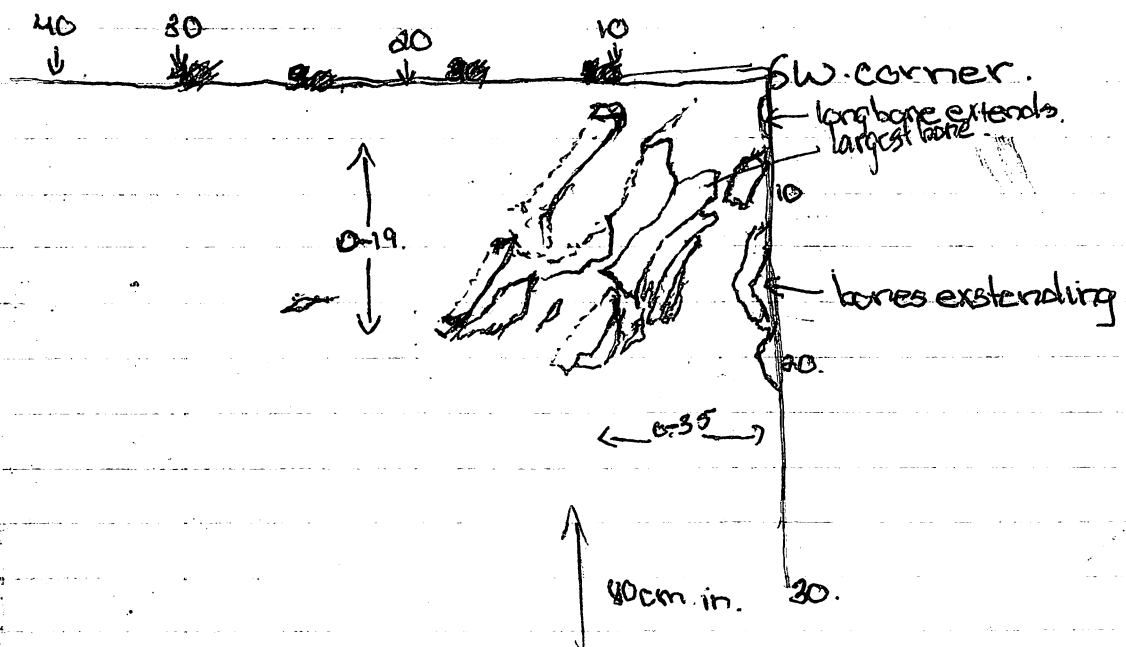 40 30 20 10
SW. corner.
long bone extends.
largest bone.
10
0-19.
bones exstending
20.
0-35
80cm in.
30.